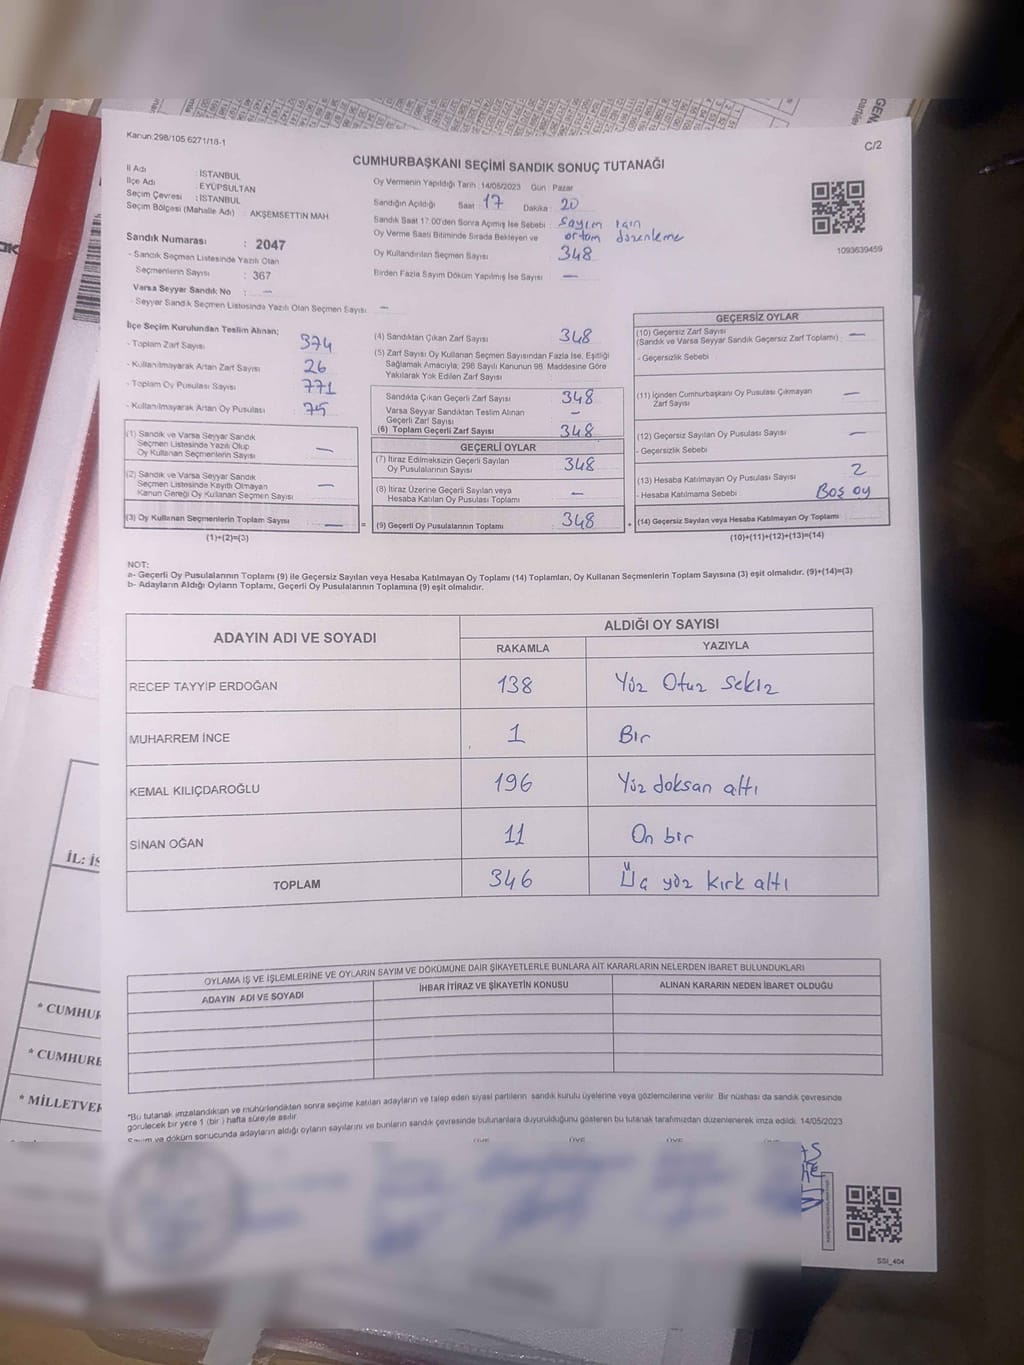 Kanun:298/105 6271/18-1
C/2
CUMHURBAŞKANI SEÇİMİ SANDIK SONUÇ TUTANAĞI
İl Adı : İSTANBUL
İlçe Adı : EYÜPSULTAN
Seçim Çevresi : İSTANBUL
Seçim Bölgesi (Mahalle Adı) : AKŞEMSETTİN MAH
Sandık Numarası : 2047
- Sandık Seçmen Listesinde Yazılı Olan
Seçmenlerin Sayısı : 367
Varsa Seyyar Sandık No : –
- Seyyar Sandık Seçmen Listesinde Yazılı Olan Seçmen Sayısı –
Oy Vermenin Yapıldığı Tarih : 14/05/2023 Gün : Pazar
Sandığın Açıldığı Saat : 17 Dakika : 20
Sandık Saat 17:00'den Sonra Açılmış İse Sebebi : Sayım için
ortam düzenleme
Oy Verme Saati Bitiminde Sırada Bekleyen ve
Oy Kullandırılan Seçmen Sayısı 348
Birden Fazla Sayım Döküm Yapılmış İse Sayısı –
1093639459
İlçe Seçim Kurulundan Teslim Alınan;
- Toplam Zarf Sayısı 374
- Kullanılmayarak Artan Zarf Sayısı 26
- Toplam Oy Pusulası Sayısı 771
- Kullanılmayarak Artan Oy Pusulası 75
(1) Sandık ve Varsa Seyyar Sandık
Seçmen Listesinde Yazılı Olup
Oy Kullanan Seçmenlerin Sayısı –
(2) Sandık ve Varsa Seyyar Sandık
Seçmen Listesinde Kayıtlı Olmayan
Kanun Gereği Oy Kullanan Seçmen Sayısı –
(3) Oy Kullanan Seçmenlerin Toplam Sayısı –
(1)+(2)=(3)
=
(4) Sandıktan Çıkan Zarf Sayısı 348
(5) Zarf Sayısı Oy Kullanan Seçmen Sayısından Fazla İse, Eşitliği
Sağlamak Amacıyla; 298 Sayılı Kanunun 98. Maddesine Göre
Yakılarak Yok Edilen Zarf Sayısı
Sandıkta Çıkan Geçerli Zarf Sayısı 348
Varsa Seyyar Sandıktan Teslim Alınan
Geçerli Zarf Sayısı –
(6) Toplam Geçerli Zarf Sayısı 348
GEÇERLİ OYLAR
(7) İtiraz Edilmeksizin Geçerli Sayılan
Oy Pusulalarının Sayısı 348
(8) İtiraz Üzerine Geçerli Sayılan veya
Hesaba Katılan Oy Pusulası Toplamı –
(9) Geçerli Oy Pusulalarının Toplamı 348
+
GEÇERSİZ OYLAR
(10) Geçersiz Zarf Sayısı
(Sandık ve Varsa Seyyar Sandık Geçersiz Zarf Toplamı) : –
- Geçersizlik Sebebi
(11) İçinden Cumhurbaşkanı Oy Pusulası Çıkmayan
Zarf Sayısı –
(12) Geçersiz Sayılan Oy Pusulası Sayısı –
- Geçersizlik Sebebi
(13) Hesaba Katılmayan Oy Pusulası Sayısı 2
- Hesaba Katılmama Sebebi Boş oy
(14) Geçersiz Sayılan veya Hesaba Katılmayan Oy Toplamı
(10)+(11)+(12)+(13)=(14)
NOT:
a- Geçerli Oy Pusulalarının Toplamı (9) ile Geçersiz Sayılan veya Hesaba Katılmayan Oy Toplamı (14) Toplamları, Oy Kullanan Seçmenlerin Toplam Sayısına (3) eşit olmalıdır. (9)+(14)=(3)
b- Adayların Aldığı Oyların Toplamı, Geçerli Oy Pusulalarının Toplamına (9) eşit olmalıdır.
ADAYIN ADI VE SOYADI
ALDIĞI OY SAYISI
RAKAMLA YAZIYLA
RECEP TAYYİP ERDOĞAN 138 Yüz Otuz Sekiz
MUHARREM İNCE 1 Bir
KEMAL KILIÇDAROĞLU 196 Yüz doksan altı
SİNAN OĞAN 11 On bir
TOPLAM 346 Üç yüz kırk altı
OYLAMA İŞ VE İŞLEMLERİNE VE OYLARIN SAYIM VE DÖKÜMÜNE DAİR ŞİKAYETLERLE BUNLARA AİT KARARLARIN NELERDEN İBARET BULUNDUKLARI
ADAYIN ADI VE SOYADI İHBAR İTİRAZ VE ŞİKAYETİN KONUSU ALINAN KARARIN NEDEN İBARET OLDUĞU
*Bu tutanak imzalandıktan ve mühürlendikten sonra seçime katılan adayların ve talep eden siyasi partilerin sandık kurulu üyelerine veya gözlemcilerine verilir. Bir nüshası da sandık çevresinde
görülecek bir yere 1 (bir) hafta süreyle asılır.
Sayım ve döküm sonucunda adayların aldığı oyların sayılarını ve bunların sandık çevresinde bulunanlara duyurulduğunu gösteren bu tutanak tarafımızdan düzenlenerek imza edildi. 14/05/2023
SSI_404
İL: İS
* CUMHUR
* CUMHURE
* MİLLETVEK